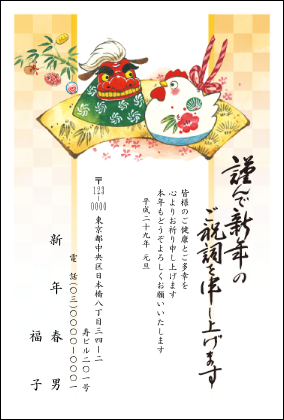 謹んで新年の
ご祝詞を申し上げます
皆様のご健康とご多幸を
心よりお祈り申し上げます
本年もどうぞよろしくお願いいたします
平成二十九年 元旦
〒123-0000
東京都中央区日本橋八丁目三四ー二
寿ビル二〇一号
電話(〇三)〇〇〇〇ー〇〇〇一
新年春男
福子